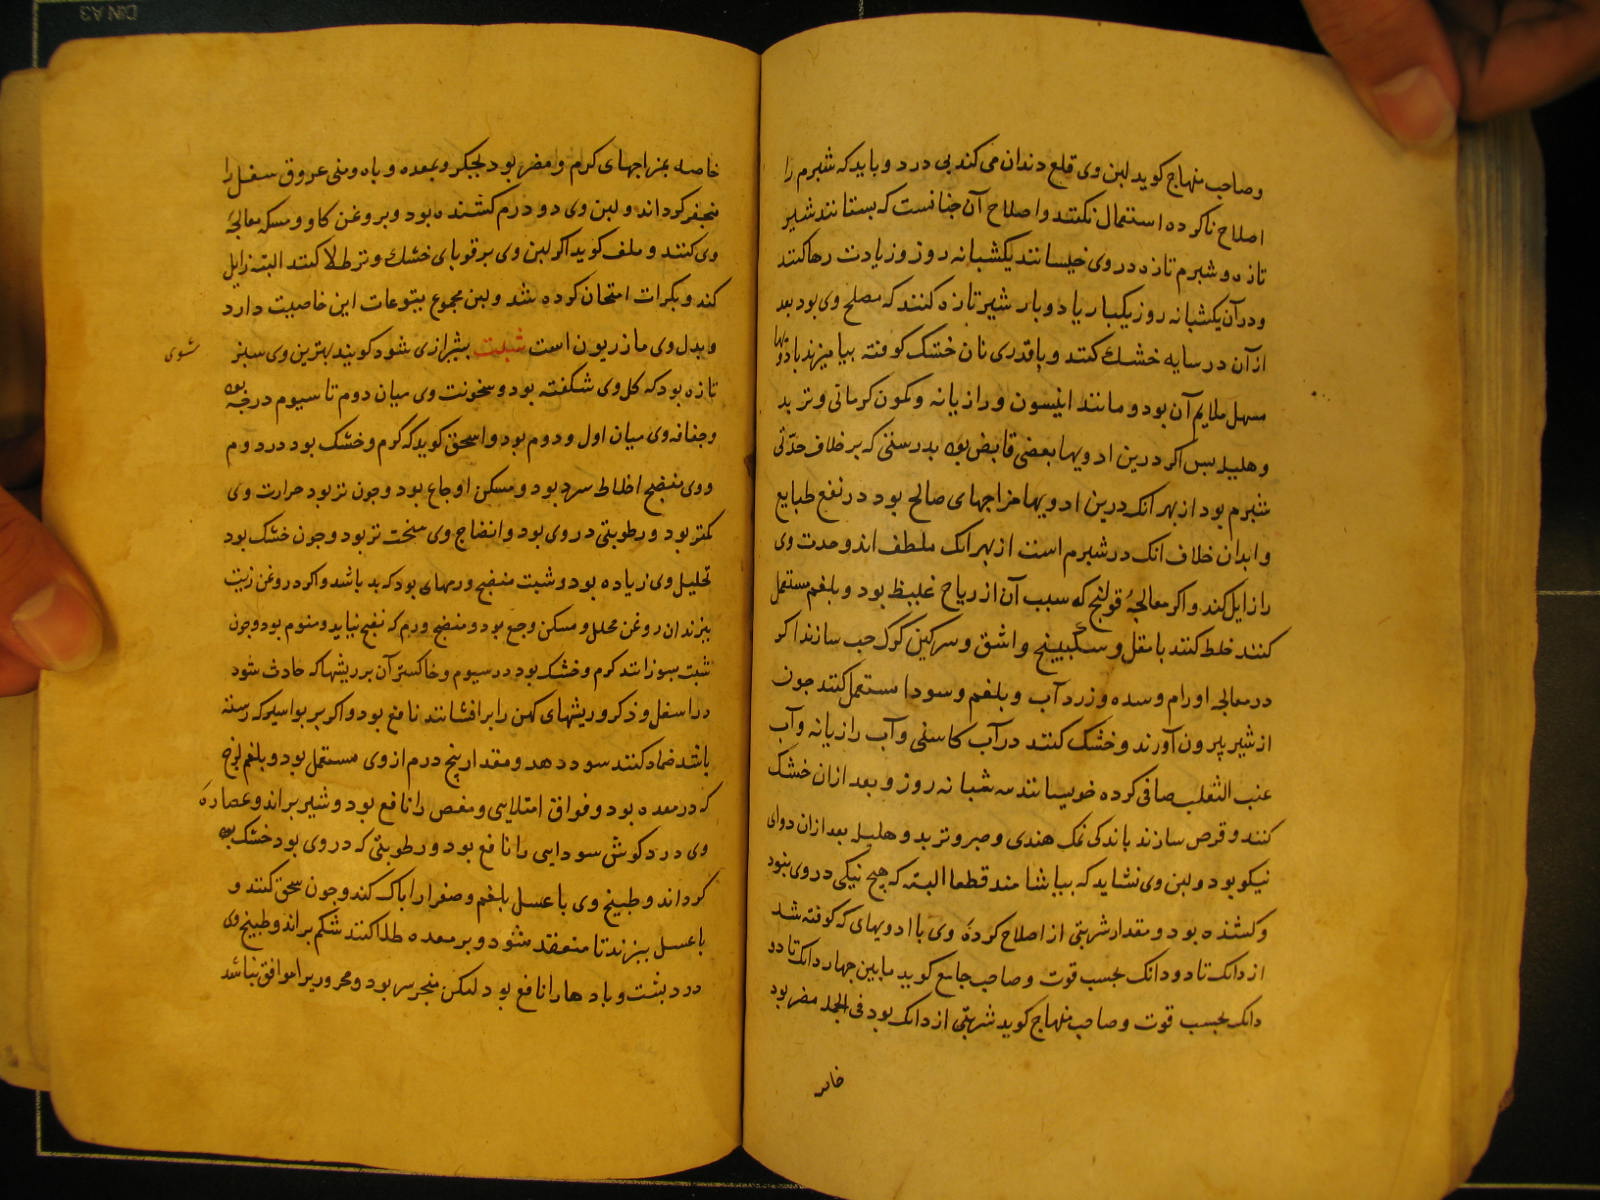 وصاحب منهاج کوید لبن وی قلع دندان می کند بی درد و باید که شبرم را
اصلاح ناکرده استعمال نکنند و اصلاح آن چنانست که بستانند شیر
تازه و شبرم تازه در وی خیسانند یکشبانه روز و زیادت رها کنند
و در آن یکشبانه روز یکبار یا دو بار شیر تازه کنند که مصلح وی بود بعد
از آن در سایه خشك کنند و با قدری نان خشك کوفته بیامیزند با دوبها
مسهل ملایم آن بود و مانند انیسون و رازیانه و کمون کرمانی و تربد
و هلیله بس اکر درین ادویها بعضی قابض بود بدرستی که بر خلاف حدّتی
شبرم بود از بهر انک درین ادویها مزاجهای صالح بود در نفع طبایع
و ابدان خلاف انک در شبرم است از بهر انک ملطف اند و حدت وی
را زایل کند و اکر معالجهٔ قولنج که سبب آن از ریاح غلیظ بود و بلغم مستعمل
کنند خلط کنند با مقل و سکبینج و اشق و سرکین کرک حب سازند اکر
در معالجه اورام و سده و زرد آب و بلغم و سودا مستعمل کنند جون
از شیر بیرون آورند و خشك کنند در آب کاسنی و آب رازیانه و آب
عنب الثعلب صافی کرده خویسانند سه شبانه روز و بعد ازان خشك
کنند و قرص سازند باندکی نمك هندی و صبر و تربد و هلیله بعد ازان دوای
نیکو بود و لبن وی نشاید که بیاشامند قطعا البته که هیج نیکی در وی بنود
و کشنده بود و مقدار شربتی از اصلاح کردهٔ وی با ادویهای که کوفته شد
از دانك تا دو دانك بحسب قوت و صاحب جامع کوید مابین جهار دانك تا دو
دانك بحسب قوت و صاحب منهاج کوید شربتی از دانك بود فی الجمله مضر بود
خاصه
خاصه بمزاجهای کرم و مضر بود بجکر و بمعده و باه و منی عروق سفل را
منجفر کرداند و لبن وی دو درم کشنده بود و بروغن کاو و مسکه معالجهٔ
وی کنند و ملف کوید اکر لبن وی بر قوبای خشك و تر طلا کنند البته زایل
کند و بکرات امتحان کرده شد و لبن مجموع یتوعات این خاصیت دارد
و بدل وی مازریون است شبت بشیرازی شود کویند بهترین وی سبز
شوی
تازه بود که کل وی شکفته بود و سخونت وی میان دوم تا سیوم درجه بود
و جفافه وی میان اول و دوم بود و اسحق کوید که کرم و خشک بود در دوم
و وی منضج اخلاط سرد بود و مسکن اوجاع بود و جون تر بود حرارت وی
کمتر بود و رطوبتی در وی بود و انضاج وی سخت تر بود و جون خشك بود
تحلیل وی زیاده بود و شبت منضج ورمهای بود که بد باشد و اکر در روغن زیت
ببزند ان روغن محلل و مسکن وجع بود و منضج ورم که نضج نیابد و منوم بود و جون
شبت بسوزانند کرم و خشك بود در سیوم و خاکستر آن بر ریشها که حادث شود
در اسفل و ذکر و ریشهای کهن را برافشانند نافع بود و اکر بر بواسیر که رسته
باشد ضماد کنند سود دهد و مقدار پنج درم از وی مستعمل بود و بلغم لزج
که در معده بود و فواق امتلایی و مغص را نافع بود و شیر براند و عصارهٔ
وی درد کوش سودایی را نافع بود و رطوبتی که در وی بود خشك بود
کرداند و طبیخ وی با عسل بلغم و صفرا را باک کند و جون سحق کنند و
با عسل ببزند تا منعقد شود و بر معده طلا کنند شکم براند و طبیخ وی
درد بشت و بادها را نافع بود لیکن مبخر سر بود و محرور یرا موافق نباشد